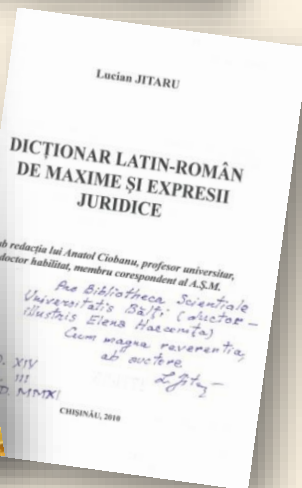 Lucian JITARU
DICȚIONAR LATIN-ROMÂN
DE MAXIME ȘI EXPRESII
JURIDICE
redacția lui Anatol Ciobanu, profesor universitar,
doctor habilitat, membru corespondent al A.Ș.M.
Pro Bibliotheca Scientiale
Universitatis Bălți: (ductor –
illustris Elena Harconița)
Cum magna reverentia,
ab auctere
XIV
III
D. MMXI
CHIȘINĂU, 2010